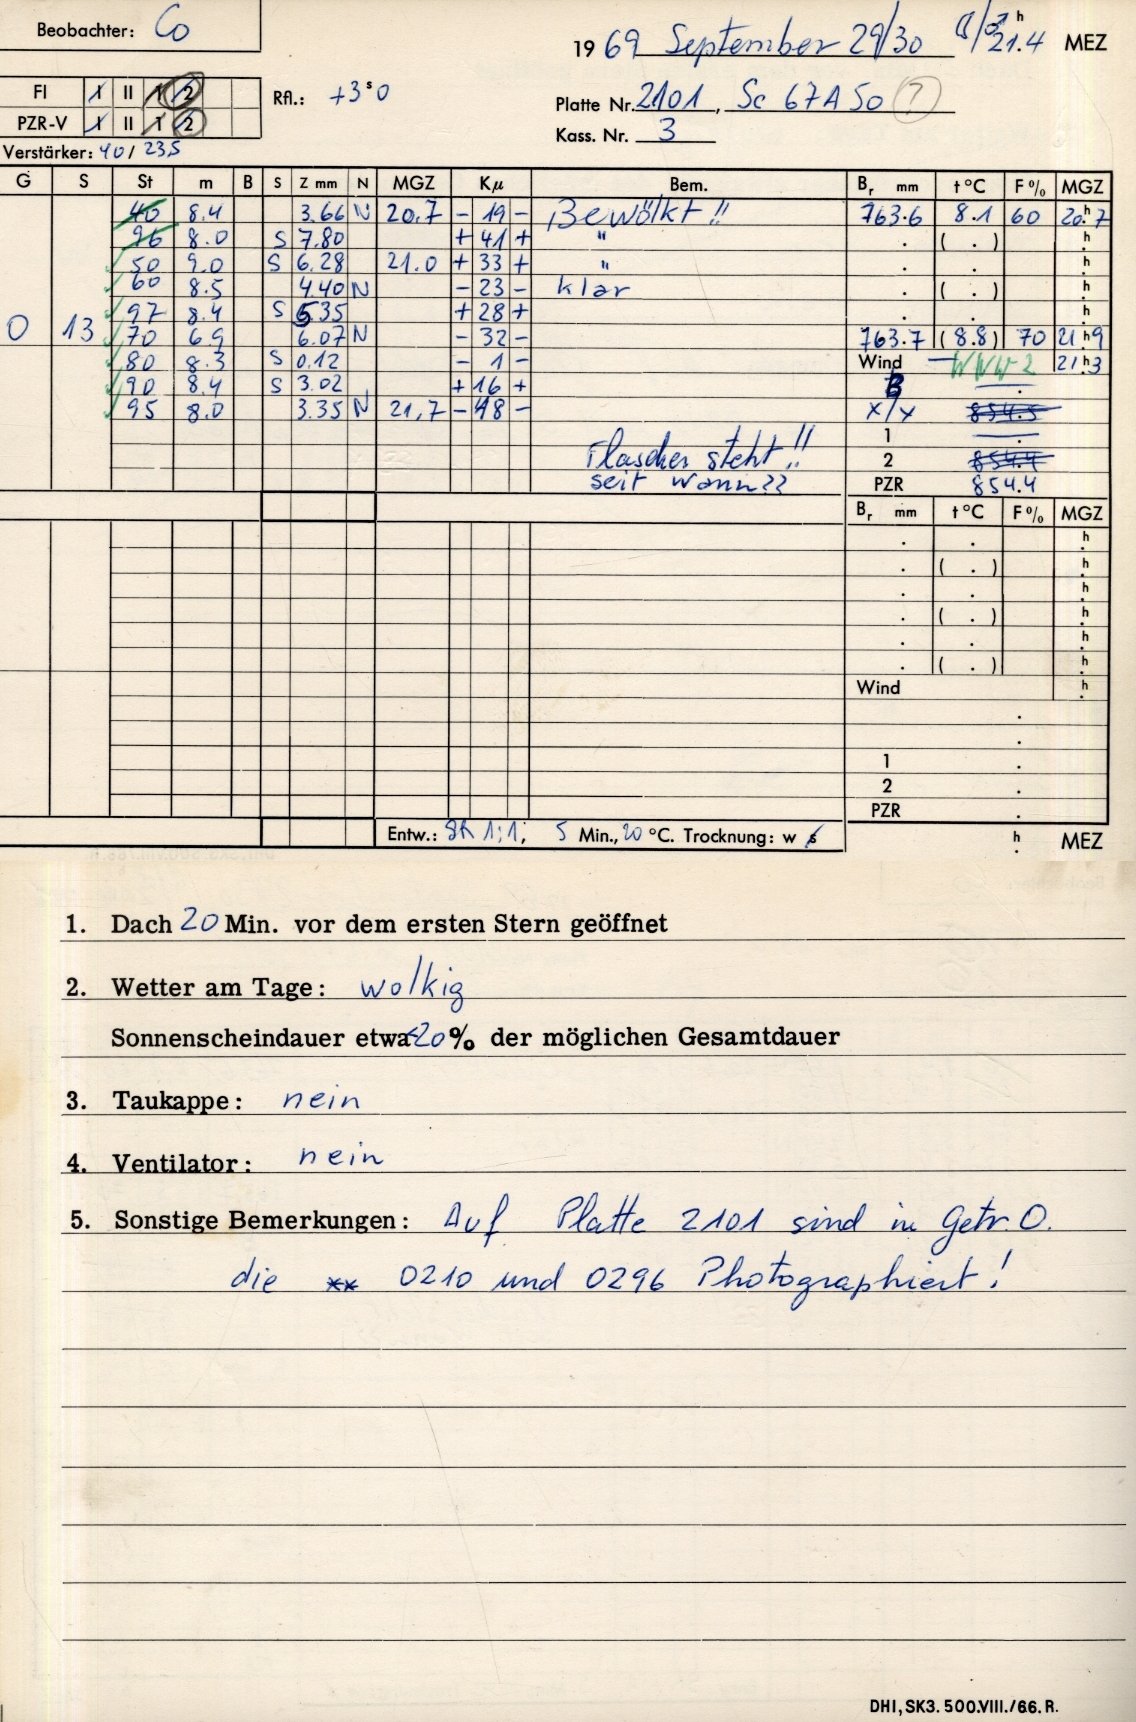 Beobachter: Co
1969 September 29/30 21.4 h MEZ
FI I II 1 2 Rfl.: +3ˢ0
Platte Nr. 2101, Sc 67A50 (?)
PZR-V I II 1 2
Kass. Nr. 3
Verstärker: 40/235
G S St m B S Z mm N MGZ Kµ Bem. Br mm t°C F% MGZ
40 8.4 3.66 N 20,7 - 19 - Bewölkt!! 763.6 8.1 60 20.7 h
96 8.0 S 7.80 + 41 + " . ( . ) h
50 9.0 S 6.28 21.0 + 33 + " . . h
60 8.5 4.40 N - 23 - klar . ( . ) h
97 8.4 S 5.35 + 28 + . . h
0 13 70 6.9 6.07 N - 32 - 763.7 (8.8) 70 21.9 h
80 8.3 S 0.12 - 1 - Wind WNW 2 21.3 h
90 8.4 S 3.02 + 16 + B
95 8.0 3.35 N 21,7 - 48 - x/y 854.5
1 .
Flascher steht!! 2 854.4
seit wann?? PZR 854.4
Br mm t°C F% MGZ
. . h
. ( . ) h
. . h
. ( . ) h
. . h
. ( . ) h
Wind h
.
.
1 .
2 .
PZR .
Entw.: 1:1, 5 Min., 20 °C. Trocknung: w s
h MEZ
1. Dach 20 Min. vor dem ersten Stern geöffnet
2. Wetter am Tage: wolkig
Sonnenscheindauer etwa <20% der möglichen Gesamtdauer
3. Taukappe: nein
4. Ventilator: nein
5. Sonstige Bemerkungen: Auf Platte 2101 sind in Getr. 0.
die ** 0210 und 0296 Photographiert!
DHI, SK3. 500.VIII./66. R.